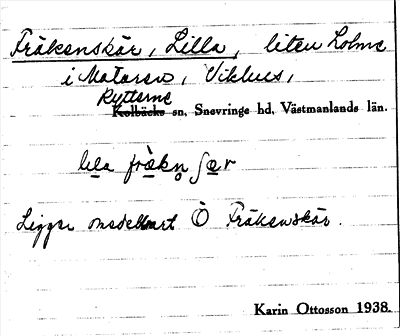 Fräkenskär, Lilla, liten holme
i Mälaren, Vikhus,
Rytterne
Kolbäcks sn, Snevringe hd, Västmanlands län.
lila fräkn̥ ʃær
Ligger omedelbart Ö Fräkenskär.
Karin Ottosson 1938.